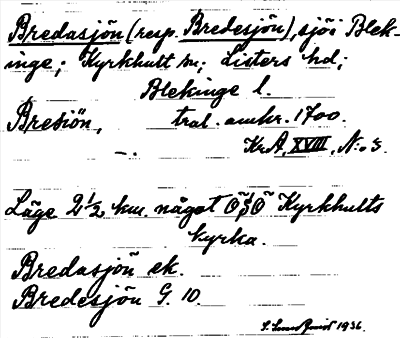 Bredasjön (resp. Bredesjön), sjö i Blek-
inge; Kyrkhult sn; Listers hd;
Blekinge l.
Bresiön, tral. omkr. 1700.
KrA, XVIII, N:o 3.
Läge 2½ km. något OSO Kyrkhults
kyrka.
Bredasjön ek.
Bredesjön G. 10.
1936.